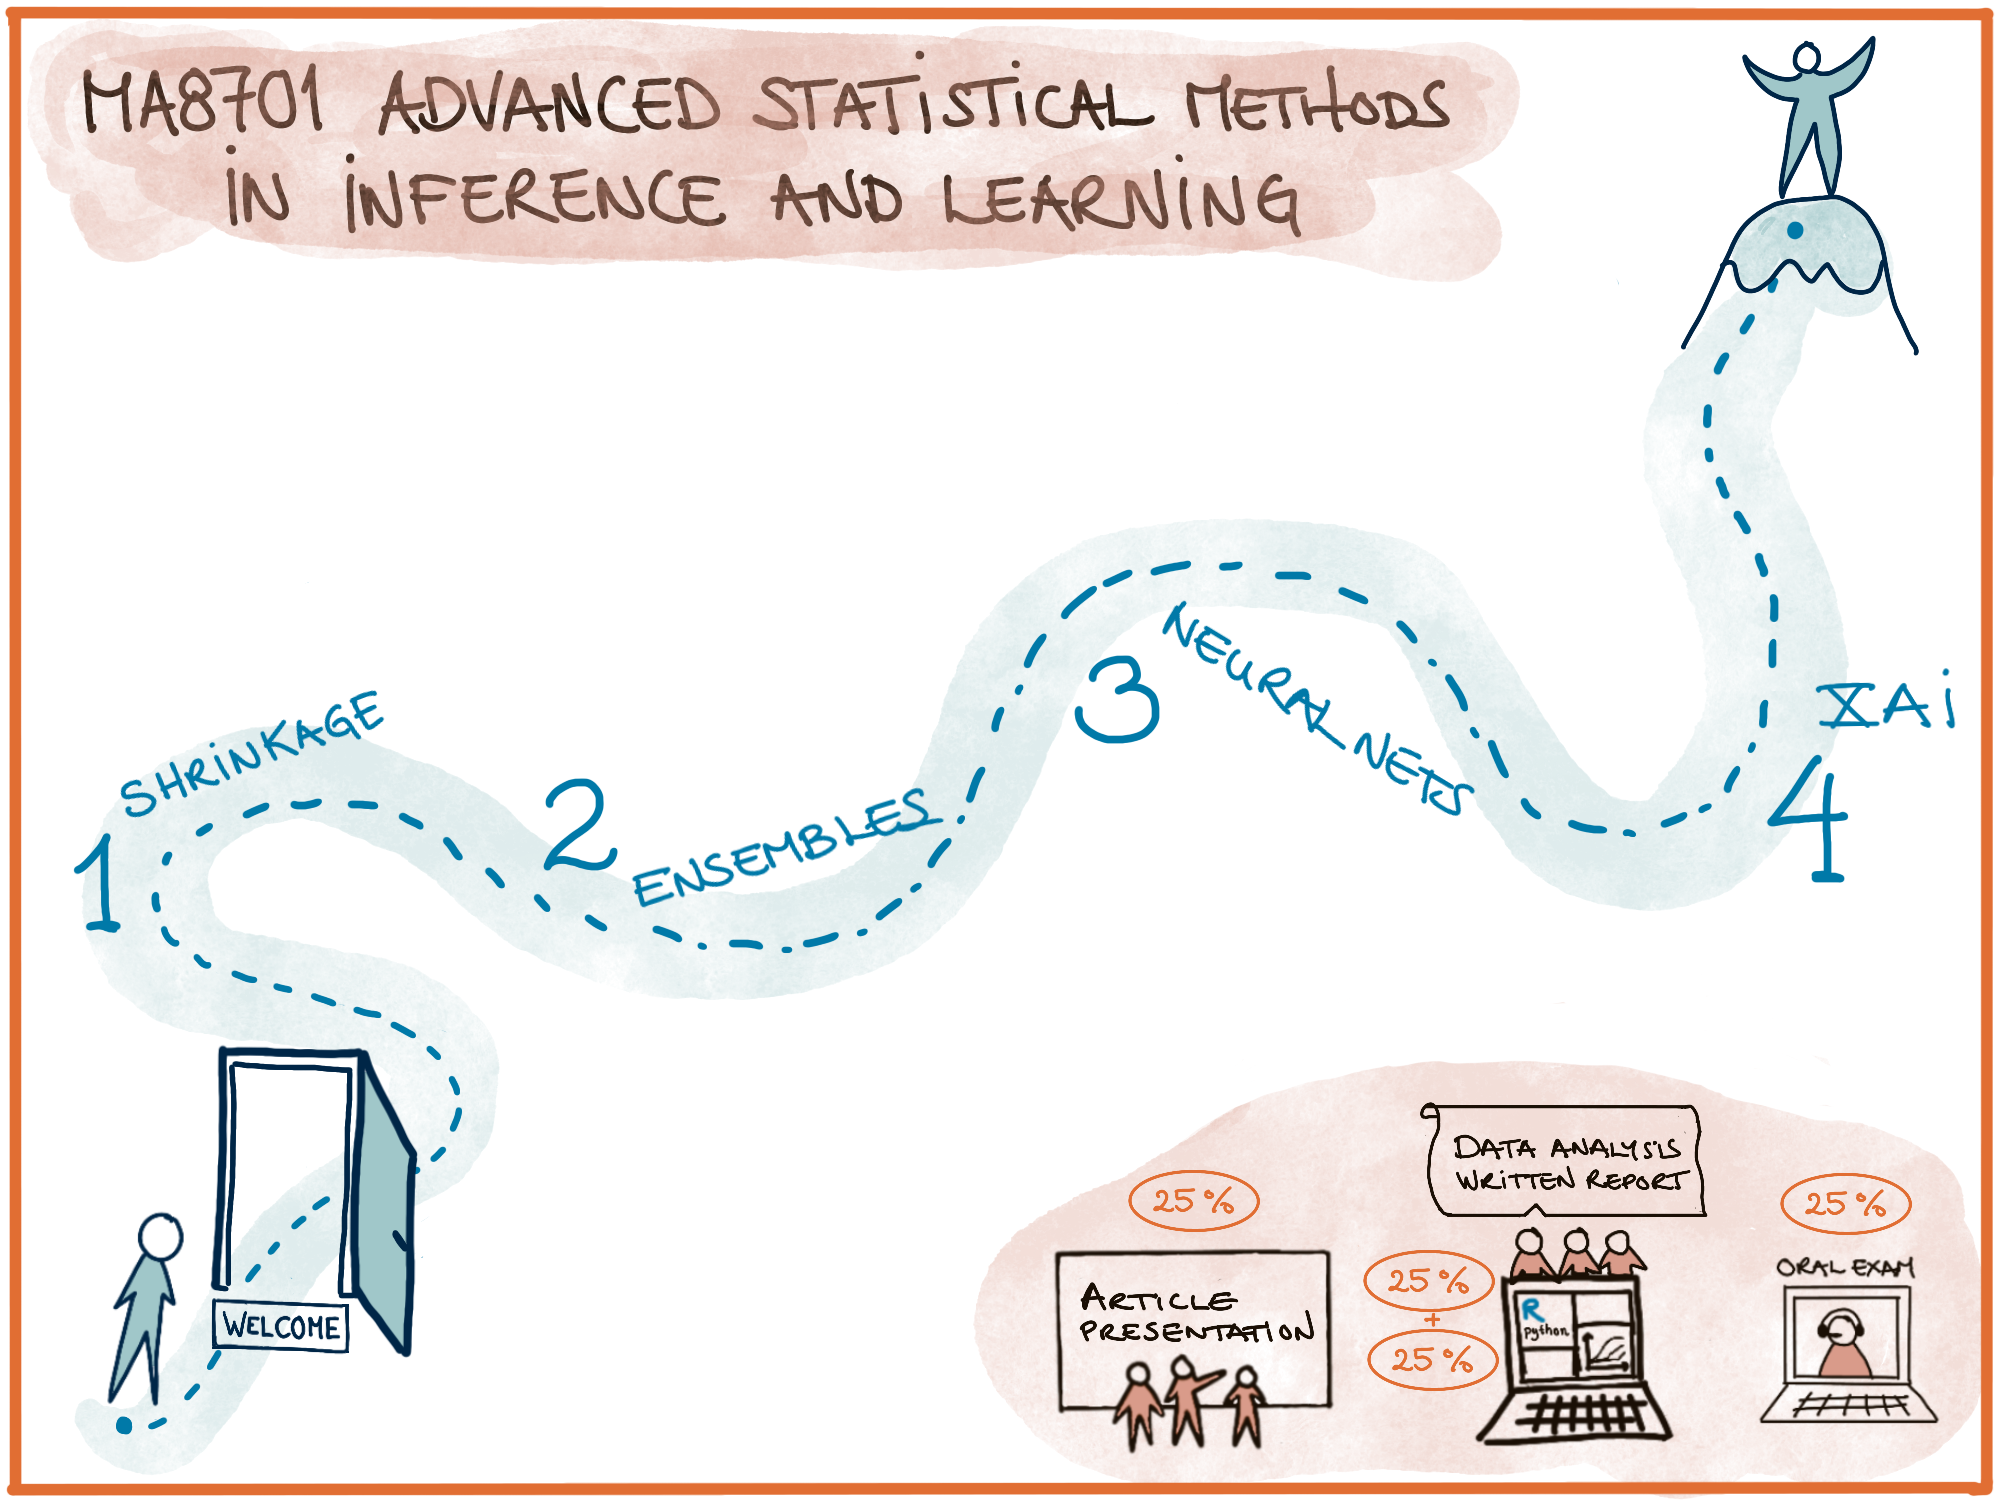 MA8701 ADVANCED STATISTICAL METHODS
IN INFERENCE AND LEARNING
1
SHRINKAGE
2
ENSEMBLES
3
NEURAL NETS
4
XAI
WELCOME
25%
ARTICLE
PRESENTATION
DATA ANALYSIS
WRITTEN REPORT
25%
+
25%
R
python
25%
ORAL EXAM